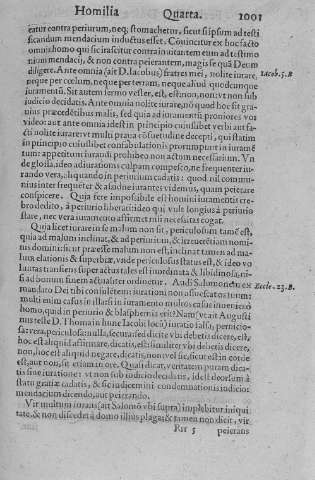 Homilia Quarta. 1001
eatur contra periurum, neq; stomachetur, sicut si ipsum ad testi
ficandum mendacium inductus esset. Conuincitur ex hoc facto
omnino homo qui sic irascitur contra iurantem eum ad testimo
nium mendacij, & non contra peierantem, magis se quã Deum
diligere. Ante omnia (ait D. Iacobus) fratres mei, nolite iurare, Iacob. 5. B
neque per cœlum, neque per terram, neque aliud quodcumque
iuramentũ. Sit autem sermo vester, est, est: non, non: vt non sub
iudicio decidatis. Ante omnia nolite iurare, nõ quod hoc sit gra-
uius præcedentibus malis, sed quia ad iuramentũ proniores vos
video: aut ante omnia idest in principio cuiuslibet verbi aut fa-
cti nolite iurare: vt multi praua cõsuetudine decepti, qui statim
in principio cuiuslibet confabulationis prorumpunt in iuramẽ
tum: appetitum iurandi prohibeo non actum necessarium. Vn
de glossa, ideo adiurationis culpam compesco, ne frequenter iu-
rando vera, aliquando in periurium cadatis: quod nil commu-
nius inter frequẽter & assidue iurantes videmus, quam peierare
conspicere. Quia fere impossibile est homini iuramentis cre-
bro dedito, à periurio liberari: ideo qui vult longius à periurio
stare, nec vera iuramento affirmet nisi necessitas cogat.
Quia licet iurare in se malum non sit, periculosum tamẽ est,
quia ad malum inclinat, & ad periurium, & irreuerẽtiam nomi-
nis domini: sicut præesse malum non est, inclinat tamen ad ma-
lum elationis & superbiæ, vnde periculosus status est, & ideo vo
luntas transiens super actus tales est inordinata & libidinosa, ni-
si ad bonum finem actualiter ordinetur. Audi Salomonem ex Eccle. 23. B.
mandato Dei tibi consulẽtem: iurationi non assuescat os tuum:
multi enim casus in illa: si in iuramento multos casus inuenies ò
homo, quid in periurio & blasphemia erit? Nam (vt ait Augusti
nus teste D. Thoma in hunc Iacobi locũ) iuratio falsa, pernicio-
sa: vera, periculosa: nulla, secura: sed dicite vbi debetis dicere, est:
hoc est aliquid affirmare, dicatis, est: similiter vbi debetis dicere,
non, hoc est aliquid negare, dicatis, non: vel sic, sicut est in corde
est, aut non, sic etiam in ore. Quasi dicat, veritatem puram dica-
tis sine iuratione: vt non sub iudicio decidatis, idest deorsum à
statu gratiæ cadatis, & sic iudicemini condemnationis indicio:
mendacium dicendo, aut peierando.
Vir multum iurans (ait Salomõ vbi supra) implebitur iniqui
tate, & non discedet à domo illius plaga: & tamen non dicit, vir
Rrr 5 peierans